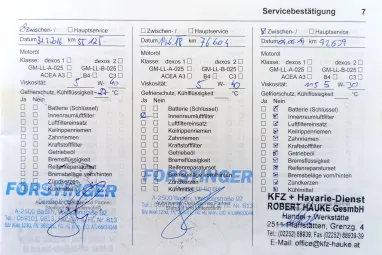 Servicebestätigung 7
Zwischen- / Hauptservice
Datum km 55 125
Motoröl
Klasse: dexos 1 dexos 2
GM-LL-A-025
GM-LL-B-025
ACEA A3 B4 C3
Viskosität: 5 W-40
Gefrierschutz, Kühlflüssigkeit -27 °C
Ja Nein
Batterie (Schlüssel)
Innenraumluftfilter
Luftfiltereinsatz
Keilrippenriemen
Zahnriemen
Kraftstofffilter
Getriebeöl
Bremsflüssigkeit
Reifenreparaturset
Bremsbeläge vorn/hinten
Zündkerzen
Kühlmittel
FORSTINGER
Zwischen- / Hauptservice
Datum km 76604
Motoröl
Klasse: dexos 1 dexos 2
GM-LL-A-025
GM-LL-B-025
ACEA A3 B4 C3
Viskosität: 5 W-40
Gefrierschutz, Kühlflüssigkeit °C
Ja Nein
Batterie (Schlüssel)
Innenraumluftfilter
Luftfiltereinsatz
Keilrippenriemen
Zahnriemen
Kraftstofffilter
Getriebeöl
Bremsflüssigkeit
Reifenreparaturset
Bremsbeläge vorn/hinten
Zündkerzen
Kühlmittel
FORSTINGER
Zwischen- / Hauptservice
Datum km 92659
Motoröl
Klasse: dexos 1 dexos 2
GM-LL-A-025
GM-LL-B-025
ACEA A3 B4 C3
Viskosität: 5 W-30
Gefrierschutz, Kühlflüssigkeit °C
Ja Nein
Batterie (Schlüssel)
Innenraumluftfilter
Luftfiltereinsatz
Keilrippenriemen
Zahnriemen
Kraftstofffilter
Getriebeöl
Bremsflüssigkeit
Reifenreparaturset
Bremsbeläge vorn/hinten
Zündkerzen
Kühlmittel
KFZ + Havarie-Dienst
ROBERT HAUKE GesmbH
Handel + Werkstätte
2511 Pfaffstätten, Grenzg. 4
Tel. (02252) 88839, Fax (02252) 88839-39
E-Mail: office@kfz-hauke.at